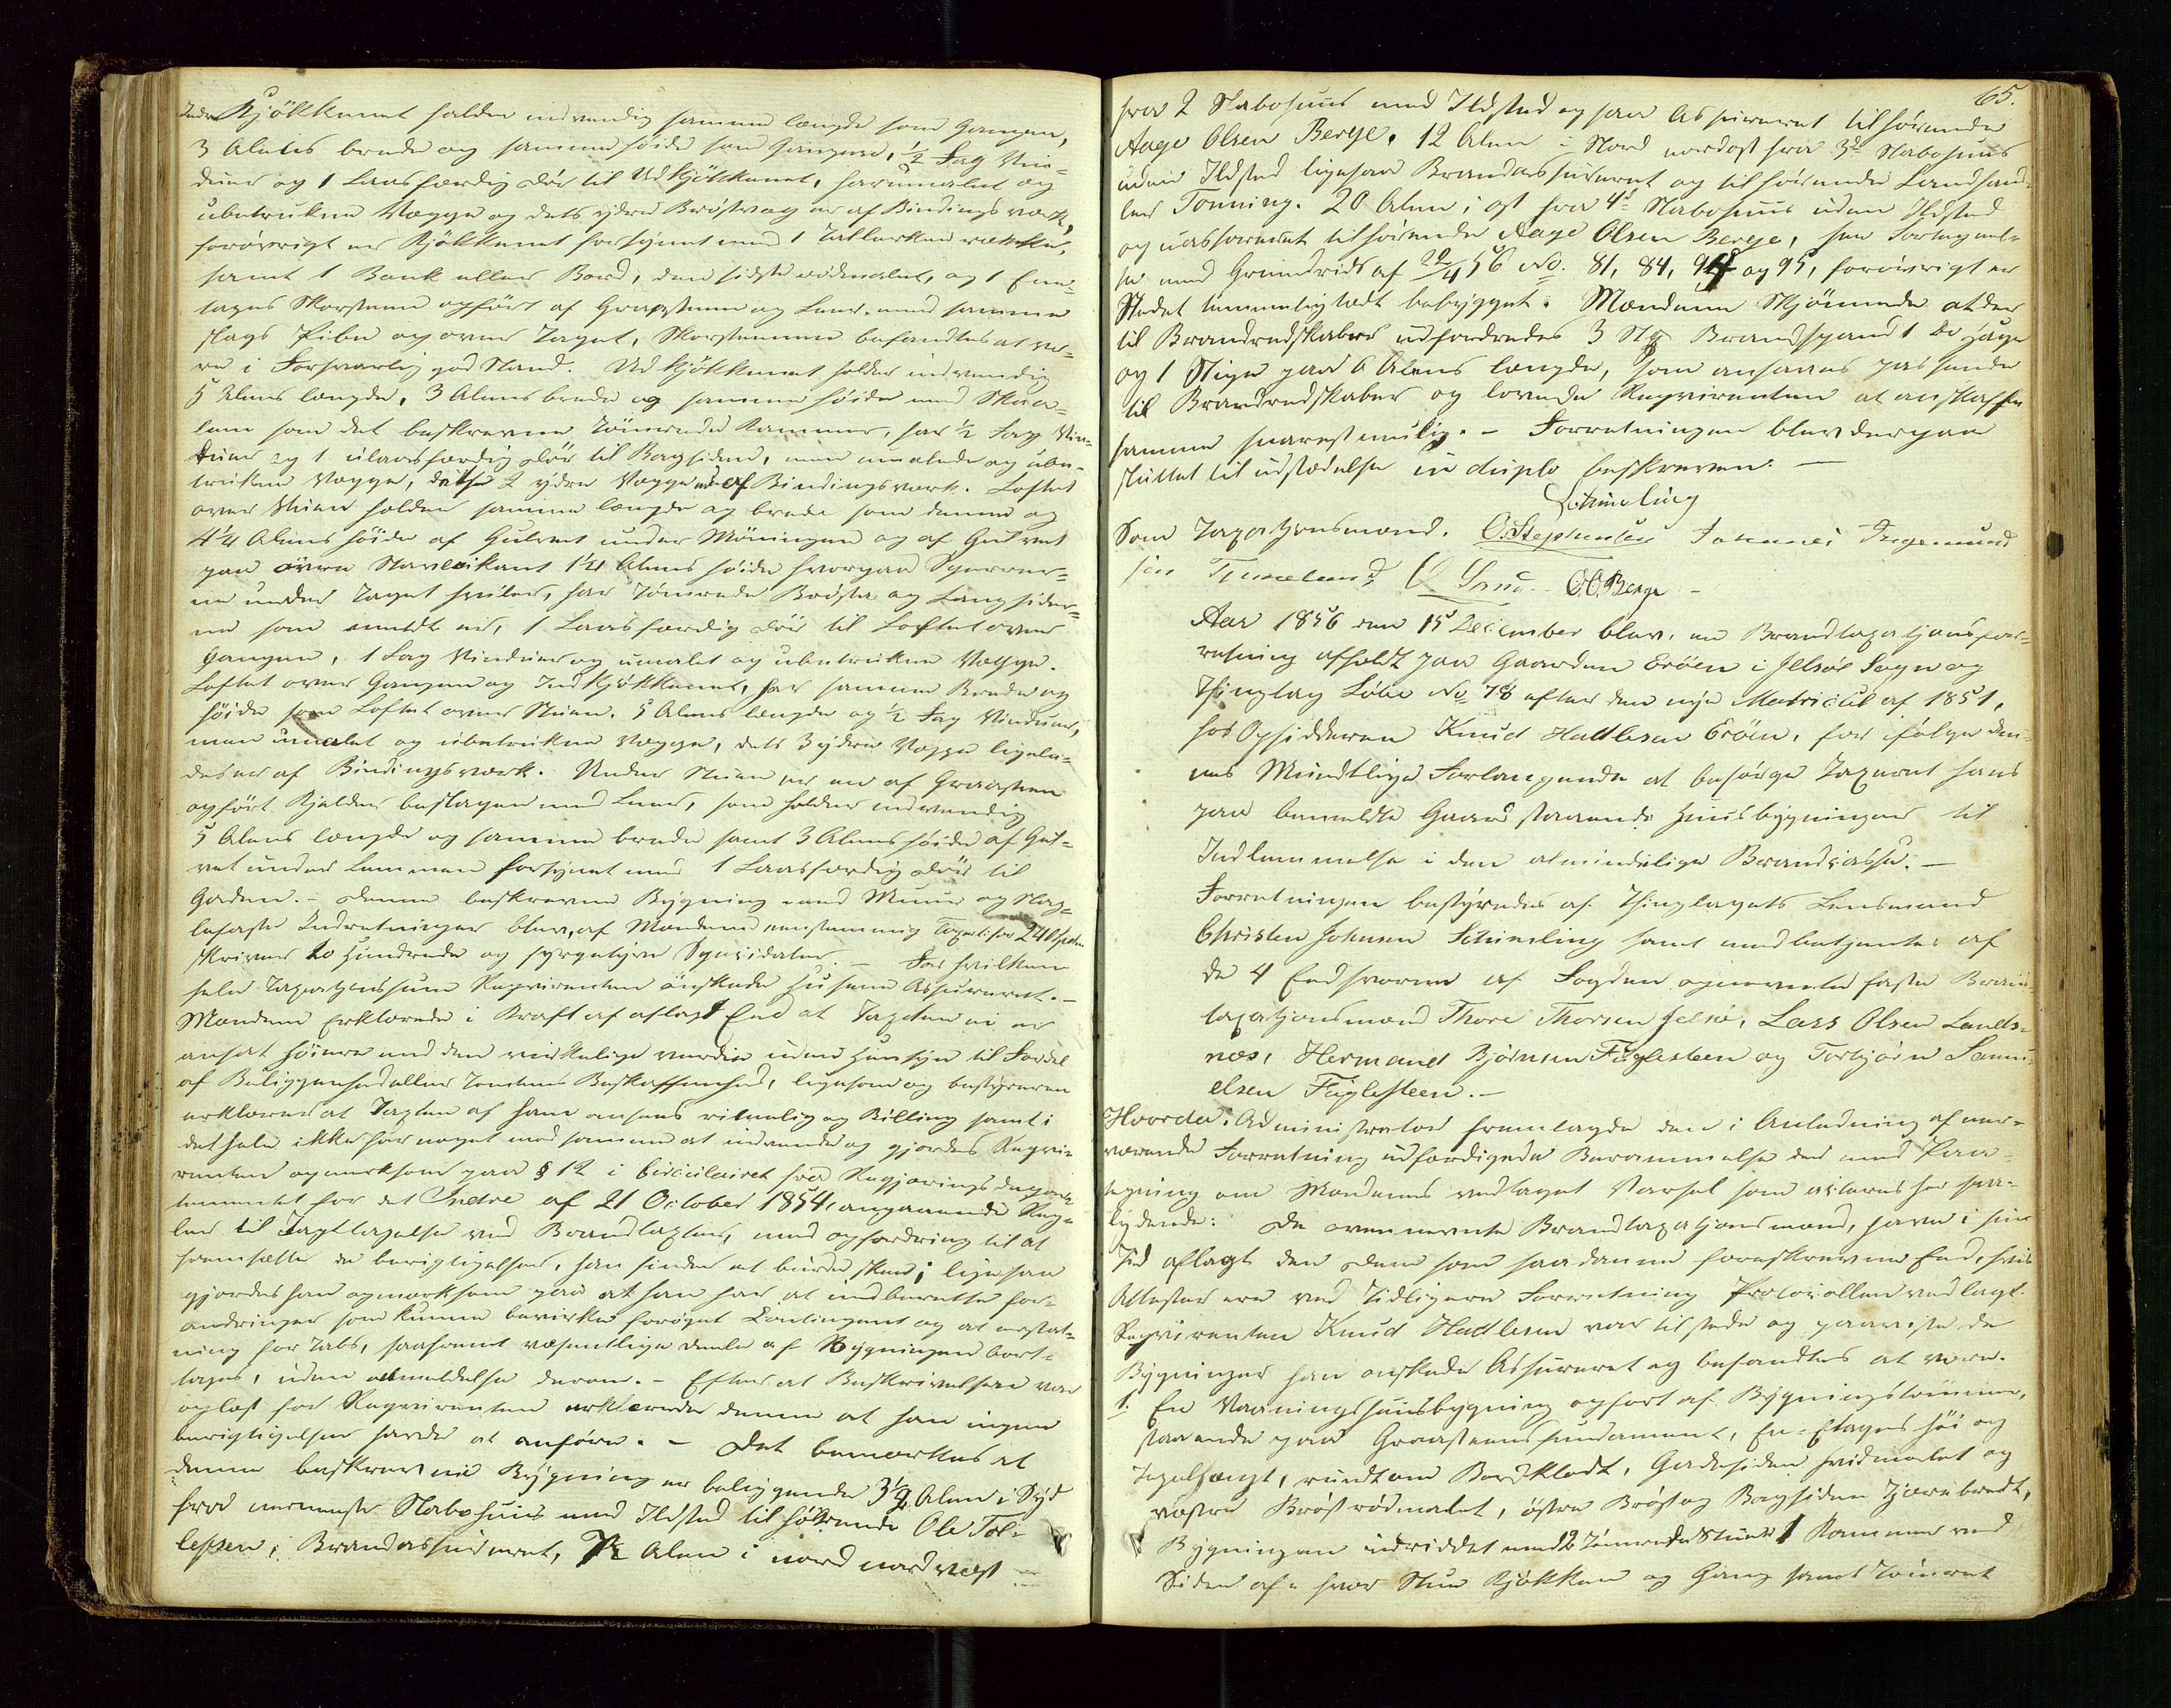 Indre Kjökkenet holder indvendig samme længde som Gangen,
3 Alens brede og samme höide som Gangen, 1/2 Fag Vin-
duer og 1 Laasfærdig Dör til Udkjökkenet, har umalet og
ubetrukne Vægge og dets ydre Bröstvæg er af Bindingsværk,
forövrigt er Kjökkenet forsynet med 1 Tallerken række,
samt 1 Bænk eller Bord, den sidste rödmalet, og 1 Een-
tages Skorsteen opfört af Graasteen og Leer. med samme
slags Pibe og over Taget, Skorstenene befandtes at væ-
re i Forsvarlig god Stand. Udkjökkenet holder indvendig
5 Alens længde, 3 Alens brede og samme höide med Skraa-
lem som det beskrevne Tömrede Kammer, har 1/2 Fag Vin-
duer og 1 ulaasfærdig Dör til Bagsiden, men umalede og ube-
trukne Vægge, dets 2 ydre Vægge er af Bindingsværk. Loftet
over Stuen holder samme længde og brede som denne og
4 1/4 Alens höide af Gulvet under Möningen og af Gulvet
paa övre Stavleikant 1 1/4 Alens höide hvorpaa Sperrer-
ne under Taget hviler, har Tömrede Bröster og Langsider-
ne som anmeldt er, 1 Laasfærdig Dör til Loftet over
Gangen, 1 Fag Vinduer og umalet og ubetrukne Vægge.
Loftet over Gangen og Indkjökkenet, har samme Brede og
höide som Loftet over Stuen. 5 Alens længde og 1/2 Fag Vinduer,
men umalet og ubetrukne Vægge, dets 3 ydre Vægge ligele-
des er af Bindingsværk. Under Stuen er en af Graasteen
opfört Kjelder beslagen med Leer, som holder indvendig
5 Alens længde og samme brede samt 3 Alens höide af Gul-
vet under Lemmen forsynet med 1 Laasfærdig Dör til
Gaden. - Denne beskrevne Bygning med Muur og Nag-
lefaste Indretninger blev, af Mændene eenstemmig Taxert for 240 Spdlr
skriver to Hundrede og fyrgetyve Speciedaler. - For hvilken
hele Taxationssum Reqvirenten önskede Husene Assureret. -
Mændene Erklærede i Kraft af aflagt Eed at Taxten ei er
ansat höiere end den virkelige værdie uden Hensyn til Fordel
af Beliggenhed eller Tomtens Beskaffenhed, ligesom og bestyreren
erklærer at Taxten af ham ansees rimelig og Billing samt i
det hele ikke har noget mod samme at indvende og gjordes Reqvi-
renten opmærksom paa § 12 i Circulairet fra Regjerings Departe-
tementet for det Indre af 21 October 1854, angaaende Reg-
ler til Iagttagelse ved Brandtaxter, med opfordring til at
fremsætte de berigtigelser, han finder at burde skee; ligesaa
gjordes han opmærksom paa at han har at indberette for-
andringer som kunne bevirke forøget Contingent og at erstat-
ning for Tab, saafremt væsentlige deele af Bygningen bort-
tages, uden anmeldelse derom. - Efterat Beskrivelsen var
oplæst for Reqvirenten erklærede denne at han ingen
berigtigelser havde at anföre. - Det bemærkes at
denne beskrevne Bygning er beliggende 3 1/2 Alen i Syd
fra nærmeste Nabohuus med Ildsted tilhørende Ole Tol-
lefsen, Brandassureret, Alen i nord nordvest
65.
fra 2 Nabohuus med Ildsted ogsaa Assureret tilhörende
Aage Olsen Berge, 12 Alen i Nord nordost fra 3de Nabohuus
uden Ildsted ligesaa Brandassureret og tilhörende Landhand-
ler Tonning. 20 Alen i ost fra 4de Nabohuus uden Ildsted
og uassureret tilhörende Aage Olsen Berge, see Fortegnel-
se med Grundrids af 29/4 56 No. 81, 84, 94 og 95, forövrigt er
Stedet temmelig tædt bebygget. Mændene Skjönnede at der
til Brandredskaber udfordredes 3 Stk Brandspand 1 do Hage
og 1 Stige paa 6 Alens længde, som ansaaes passende
til Brandredskaber og lovede Reqvirenten at anskaffe
samme snarest mulig. - Forretningen blev derpaa
sluttet til udstædelse in duplo beskreven. -
Schimeling
Som Taxationsmænd. O. Stephensen Johannes Ingemund
sen O.O. Berge -
Aar 1856 den 15 December blev, en Brandtaxationsfor-
retning afholdt paa Gaarden Eröen i Jelsöe Sogn og
Thinglag Löbe No 78 efter den nye Matricul af 1851,
hos Opsidderen Knud Hatlesen Eröen, for ifölge den-
nes Mundtlige Forlangende at besörge Taxeret hans
paa bemeldte Gaard staaende Huusbygninger til
Indlemmelse i den almindelige Brandcasse. -
Forretningen bestyredes af Thinglagets Lensmand
Christen Johnsen Schimeling samt medbetjentes af
de 4 Eedsvorne af Fogden opnevnte faste Brand-
taxationsmænd Thore Thorsen Jelsö, Lars Olsen Lands-
næs, Hermand Björnsen Fuglesteen og Torbjörn Samu-
elsen Fuglesteen. -
Hvorda: Administrator fremlagde den i Anledning af nær-
værende Forretning udfærdigede Berammelse ded med Paa-
tegning om Mændenes vedtaget Varsel som acteres her saa-
lydende: De ovennevnte Brandtaxationsmænd, have i sin
Tid aflagt den Dem som saadanne foreskrevne Eed, hvis
Attester ere ved Tidligere Forretning Protocollen vedlagt.
Reqvirenten Knud Hatlesen var tilstede og paaviste de
Bygninger han önskede Assureret og befandtes at være.
1. En Vaaningshuusbygning opfört af Bygningstömmer,
staaende paa Graasteensfundament, En-Etages höi og
Tegelhængt, rundtom Bordklædt, Gadesiden hvidmalet og
vestre Bröst rödmalet, östre Bröst og Bagsiden Tjærebredt,
Bygningen indriddet med 2 Tömrede Stuer 1 Kammer ved
Siden af hver Stue Kjökken og Gang samt Tömret